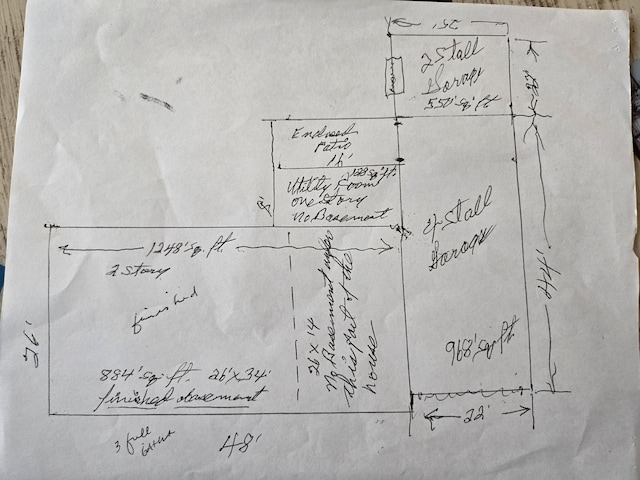 25'
2 Stall
Garage
550' sq ft
22'
Enclosed
Patio
16'
128 sq ft.
Utility Room
one story
no Basement
8'
4 Stall
Garage
968' sq ft
44'
22'
1248' sq. ft.
2 story
finished
26'
26 x 14
No Basement under
this part of the
house
884' sq. ft. 26' x 34'
finished basement
3 full
48'